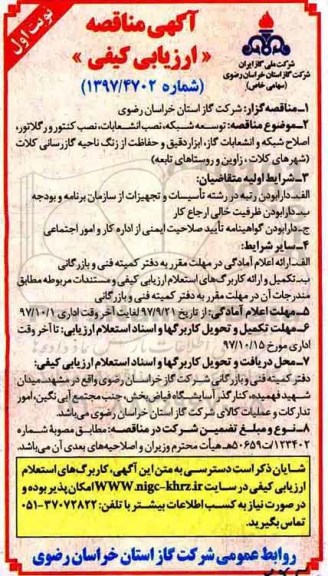 نوبت اول
آگهی مناقصه
« ارزیابی کیفی »
(شماره ۱۳۹۷/۴۷۰۲)
شرکت ملی گاز ایران
شرکت گاز استان خراسان رضوی
(سهامی خاص)
۱ـ مناقصه گزار: شرکت گاز استان خراسان رضوی
۲ـ موضوع مناقصه: توسعه شبکه، نصب انشعابات، نصب کنتور و رگلاتور،
اصلاح شبکه و انشعابات گاز، ابزار دقیق و حفاظت از زنگ ناحیه گازرسانی کلات
(شهرهای کلات ، زاوین و روستاهای تابعه)
۳ـ شرایط اولیه متقاضیان:
الف ـ دارا بودن رتبه در رشته تأسیسات و تجهیزات از سازمان برنامه و بودجه
ب ـ دارا بودن ظرفیت خالی ارجاع کار
ج ـ دارا بودن گواهینامه تأیید صلاحیت ایمنی از اداره کار و امور اجتماعی
۴ـ سایر شرایط:
الف ـ ارائه اعلام آمادگی در مهلت مقرر به دفتر کمیته فنی و بازرگانی
ب ـ تکمیل و ارائه کاربرگ های استعلام ارزیابی کیفی و مستندات مربوطه مطابق
مندرجات آن در مهلت مقرر به دفتر کمیته فنی و بازرگانی
۵ـ مهلت اعلام آمادگی: از تاریخ ۹۷/۹/۲۱ لغایت آخر وقت اداری ۹۷/۱۰/۱
۶ـ مهلت تکمیل و تحویل کاربرگها و اسناد استعلام ارزیابی: تا آخر وقت
اداری مورخ ۹۷/۱۰/۱۵
۷ـ محل دریافت و تحویل کاربرگها و اسناد استعلام ارزیابی کیفی:
دفتر کمیته فنی و بازرگانی شرکت گاز خراسان رضوی واقع در مشهد، میدان
شهید فهمیده، کنار گذر آسایشگاه فیاض بخش، جنب مجتمع آبی نگین، امور
تدارکات و عملیات کالای شرکت گاز استان خراسان رضوی می باشد.
۸ـ نوع و مبلغ تضمین شرکت در مناقصه: مطابق مصوبه شماره
۱۲۳۴۰۲/ت۵۰۶۵۹هـ هیأت محترم وزیران و اصلاحیه های بعدی آن می باشد.
شایان ذکر است دسترسی به متن این آگهی، کاربرگ های استعلام
ارزیابی کیفی در سایت WWW.nigc-khrz.ir امکان پذیر بوده و
در صورت نیاز به کسب اطلاعات بیشتر با تلفن: ۳۷۰۷۲۸۲۲-۰۵۱
تماس بگیرید.
روابط عمومی شرکت گاز استان خراسان رضوی